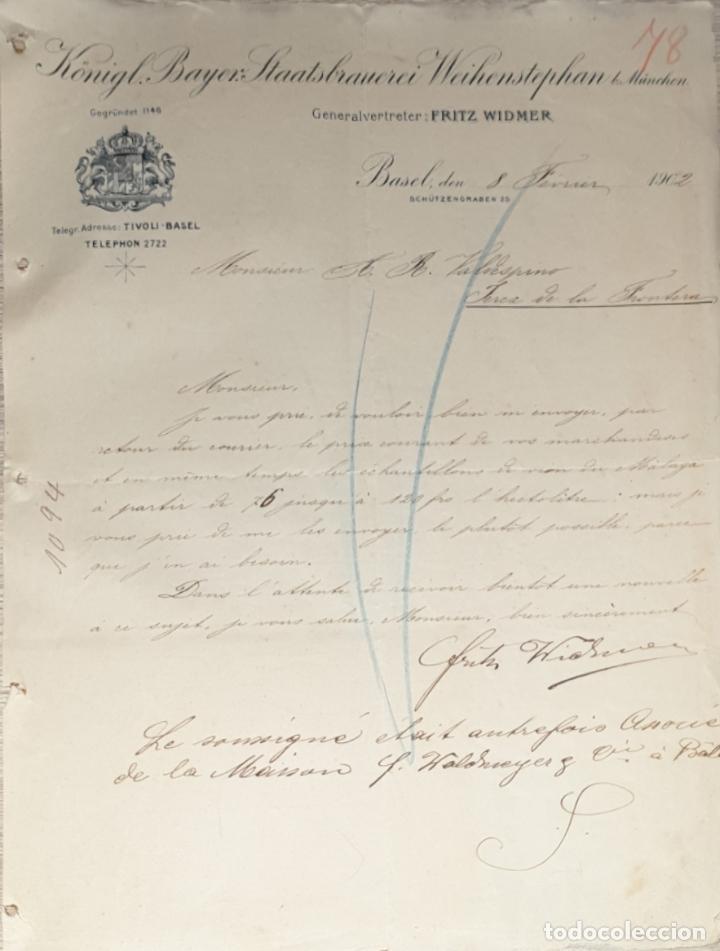 78
Königl. Bayer. Staatsbrauerei Weihenstephan b. München.
Gegründet 1146
Generalvertreter: FRITZ WIDMER
Basel, den 8 Février 1902
SCHÜTZENGRABEN 35
Telegr. Adresse: TIVOLI-BASEL
TELEPHON 2722
Monsieur A. R. Valdespino
Jerez de la Frontera
Monsieur,
Je vous prie, de vouloir bien m'envoyer, par
retour du courier, le prix courant de vos marchandises
et en même temps les échantillons de vion du Malaga
à partir de 76 jusqu'à 120 frs l'hectolitre; mais je
vous prie de me les envoyer le plutôt possible, parce
que j'en ai besoin.
Dans l'attente de recevoir bientôt une nouvelle
à ce sujet, je vous salue, Monsieur, bien sincèrement
Fritz Widmer
1094
Le soussigné était autrefois Associé
de la Maison f. Waldmeyer & Cie à Bâl
todocoleccion
todocoleccion.net